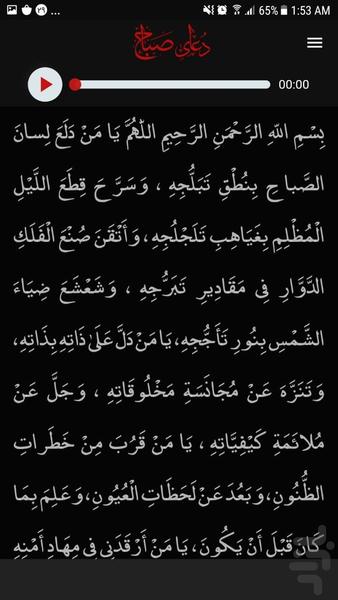 65% 1:53 AM
دعای صباح
00:00
بِسْمِ اللّٰهِ الرَّحْمٰنِ الرَّحِيمِ اللّٰهُمَّ يَا مَنْ دَلَعَ لِسانَ
الصَّباحِ بِنُطْقِ تَبَلُّجِهِ ، وَسَرَّحَ قِطَعَ اللَّيْلِ
الْمُظْلِمِ بِغَيَاهِبِ تَلَجْلُجِهِ، وَأَتْقَنَ صُنْعَ الْفَلَكِ
الدَّوَّارِ فِى مَقَادِيرِ تَبَرُّجِهِ ، وَشَعْشَعَ ضِيَاءَ
الشَّمْسِ بِنُورِ تَأَجُّجِهِ، يَا مَنْ دَلَّ عَلَىٰ ذَاتِهِ بِذَاتِهِ،
وَتَنَزَّهَ عَنْ مُجَانَسَةِ مَخْلُوقَاتِهِ ، وَجَلَّ عَنْ
مُلائَمَةِ كَيْفِيَّاتِهِ ، يَا مَنْ قَرُبَ مِنْ خَطَراتِ
الظُّنُونِ، وَبَعُدَ عَنْ لَحَظَاتِ الْعُيُونِ، وَعَلِمَ بِمَا
كَانَ قَبْلَ أَنْ يَكُونَ، يَا مَنْ أَرْقَدَنِى فِى مِهَادِ أَمْنِهِ